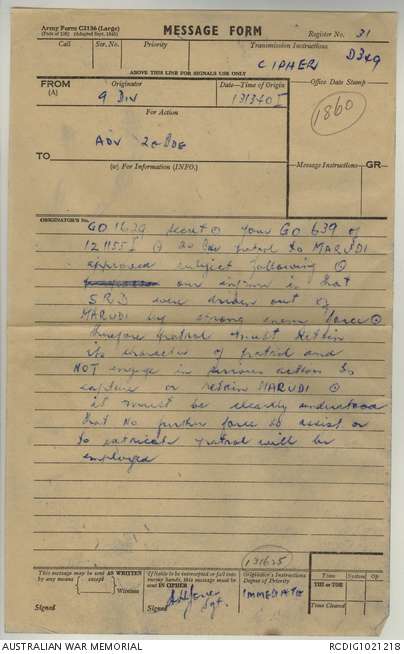 Army Form C2136 (Large)
(Pads of 100) (Adopted Sept. 1945)
MESSAGE FORM
Register No. 31
Call
Ser. No.
Priority
Transmission Instructions
CIPHER
D349
ABOVE THIS LINE FOR SIGNALS USE ONLY
FROM
(A)
Originator
9 DIV
Date—Time of Origin
131340 I
Office Date Stamp
1860
For Action
ADV 20 BDE
TO
(W) For Information (INFO.)
Message Instructions
GR
ORIGINATOR'S No.
GO 1629 secret ⊙ your GO 639 of
121155 I ⊙ 20 Bde patrol to MARUDI
approved subject following ⊙
our inform is that
SRD were driven out of
MARUDI by strong enemy force ⊙
therefore patrol must retain
its character of patrol and
NOT engage in serious action to
capture or retain MARUDI ⊙
it must be clearly understood
that NO further force to assist or
to extricate patrol will be
employed
131625
This message may be sent AS WRITTEN
by any means
except
Wireless
Signed
If liable to be intercepted or fall into
enemy hands, this message must be
sent IN CIPHER
Signed
Sgt.
Originator's Instructions
Degree of Priority
IMMEDIATE
Time
System
Op
THI or TOR
Time Cleared
AUSTRALIAN WAR MEMORIAL
RCDIG1021218